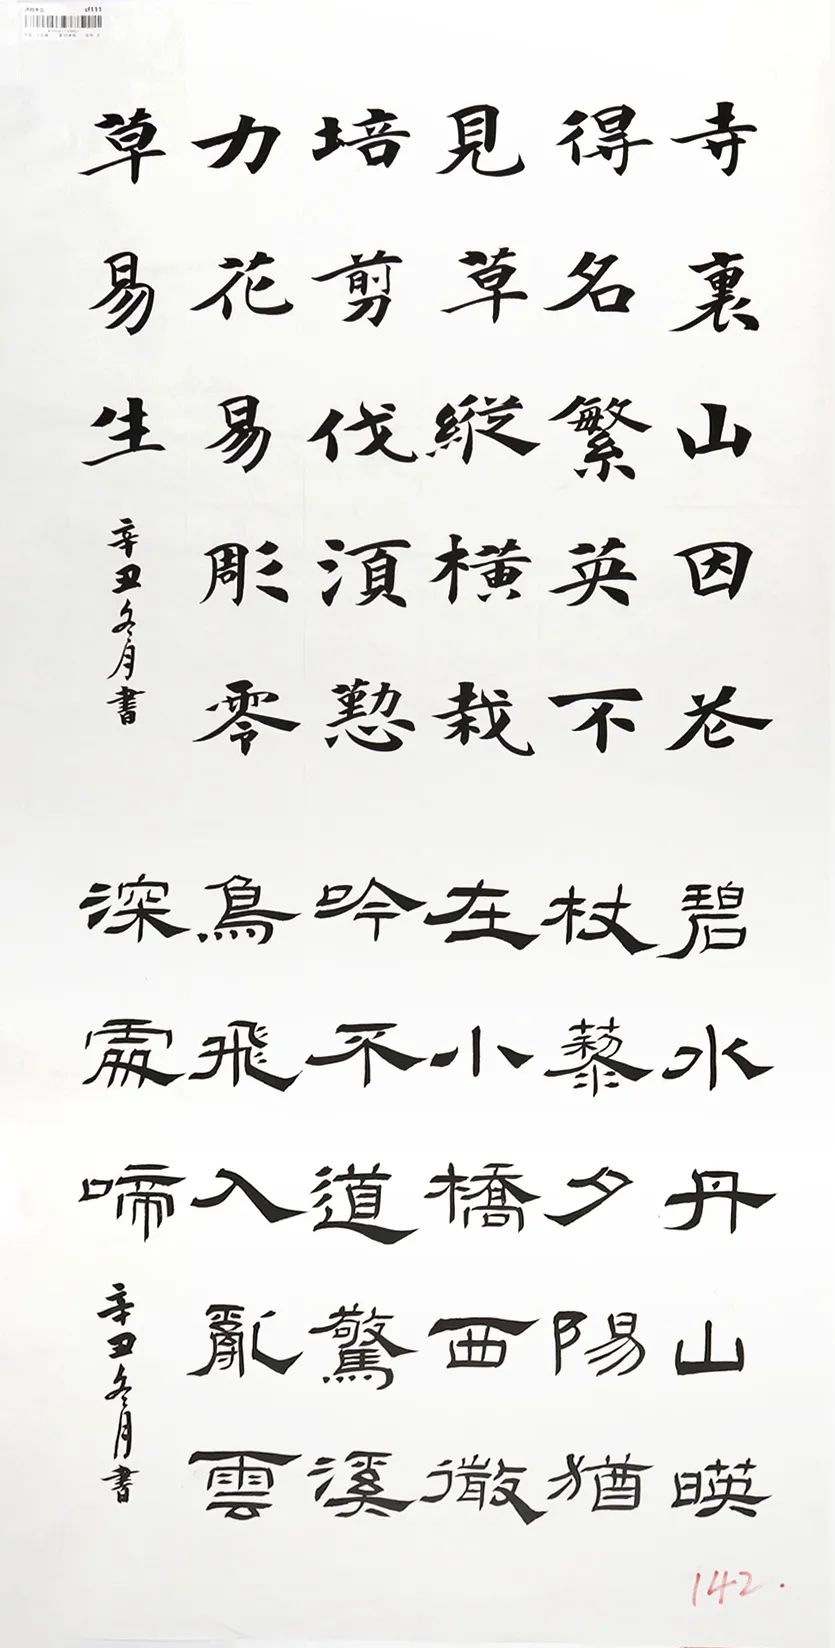 sf111
寺裏山因花
得名繁英不
見草縱橫栽
培剪伐須懃
力花易彫零
草易生
辛丑冬月書
碧水丹山暎
杖藜夕陽猶
在小橋西微
吟不道驚溪
鳥飛入亂雲
深處啼
辛丑冬月書
142.